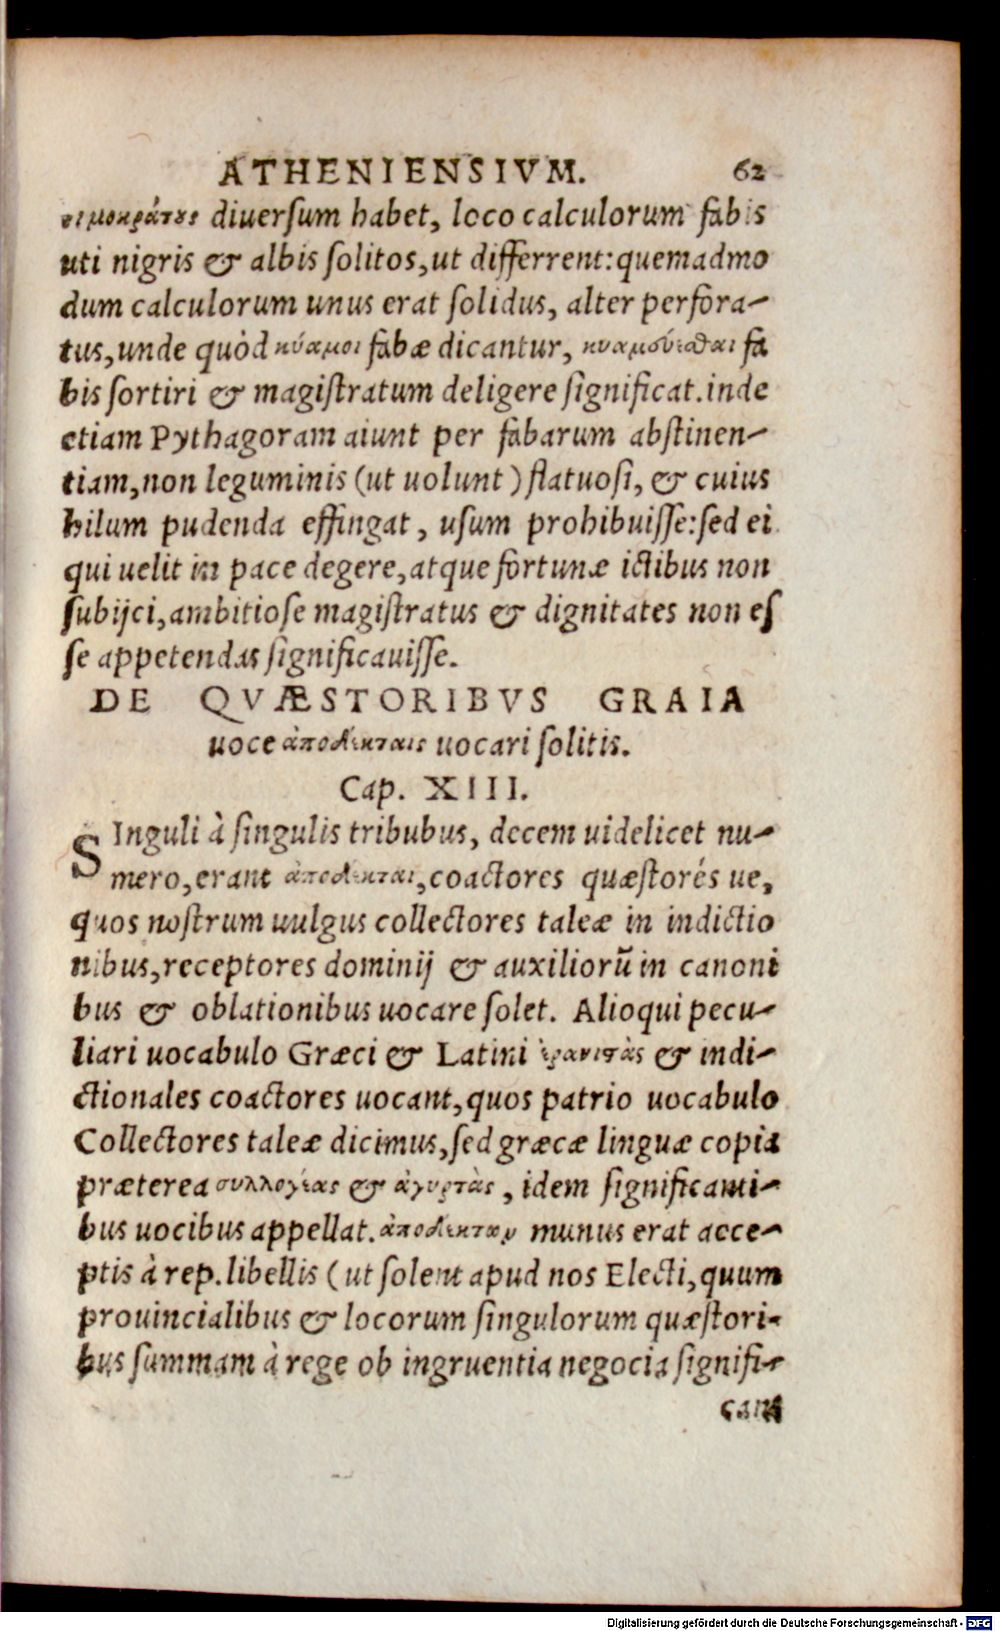 ATHENIENSIVM. 62
τιμοκράτους diuersum habet, loco calculorum fabis
uti nigris & albis solitos, ut differrent: quemadmo
dum calculorum unus erat solidus, alter perfora-
tus, unde quòd κύαμοι fabæ dicantur, fa
bis sortiri & magistratum deligere significat. inde
etiam Pythagoram aiunt per fabarum abstinen-
tiam, non leguminis (ut uolunt) flatuosi, & cuius
hilum pudenda effingat, usum prohibuisse: sed ei
qui uelit in pace degere, atque fortunæ ictibus non
subijci, ambitiose magistratus & dignitates non es
se appetendas significauisse.
DE QVÆSTORIBVS GRAIA
uoce ἀποδέκταις uocari solitis.
Cap. XIII.
SInguli à singulis tribubus, decem uidelicet nu-
mero, erant ἀποδέκται, coactores quæstorés ue,
quos nostrum uulgus collectores taleæ in indictio
nibus, receptores dominij & auxiliorũ in canoni
bus & oblationibus uocare solet. Alioqui pecu-
liari uocabulo Græci & Latini ἐρανιστὰς & indi-
ctionales coactores uocant, quos patrio uocabulo
Collectores taleæ dicimus, sed græcæ linguæ copia
præterea συλλογέας & ἀγυρτὰς, idem significanti-
bus uocibus appellat. ἀποδεκτῶν munus erat acce-
ptis à rep. libellis (ut solent apud nos Electi, quum
prouincialibus & locorum singulorum quæstori-
bus summam à rege ob ingruentia negocia signifi-
cant
Digitalisierung gefördert durch die Deutsche Forschungsgemeinschaft - DFG